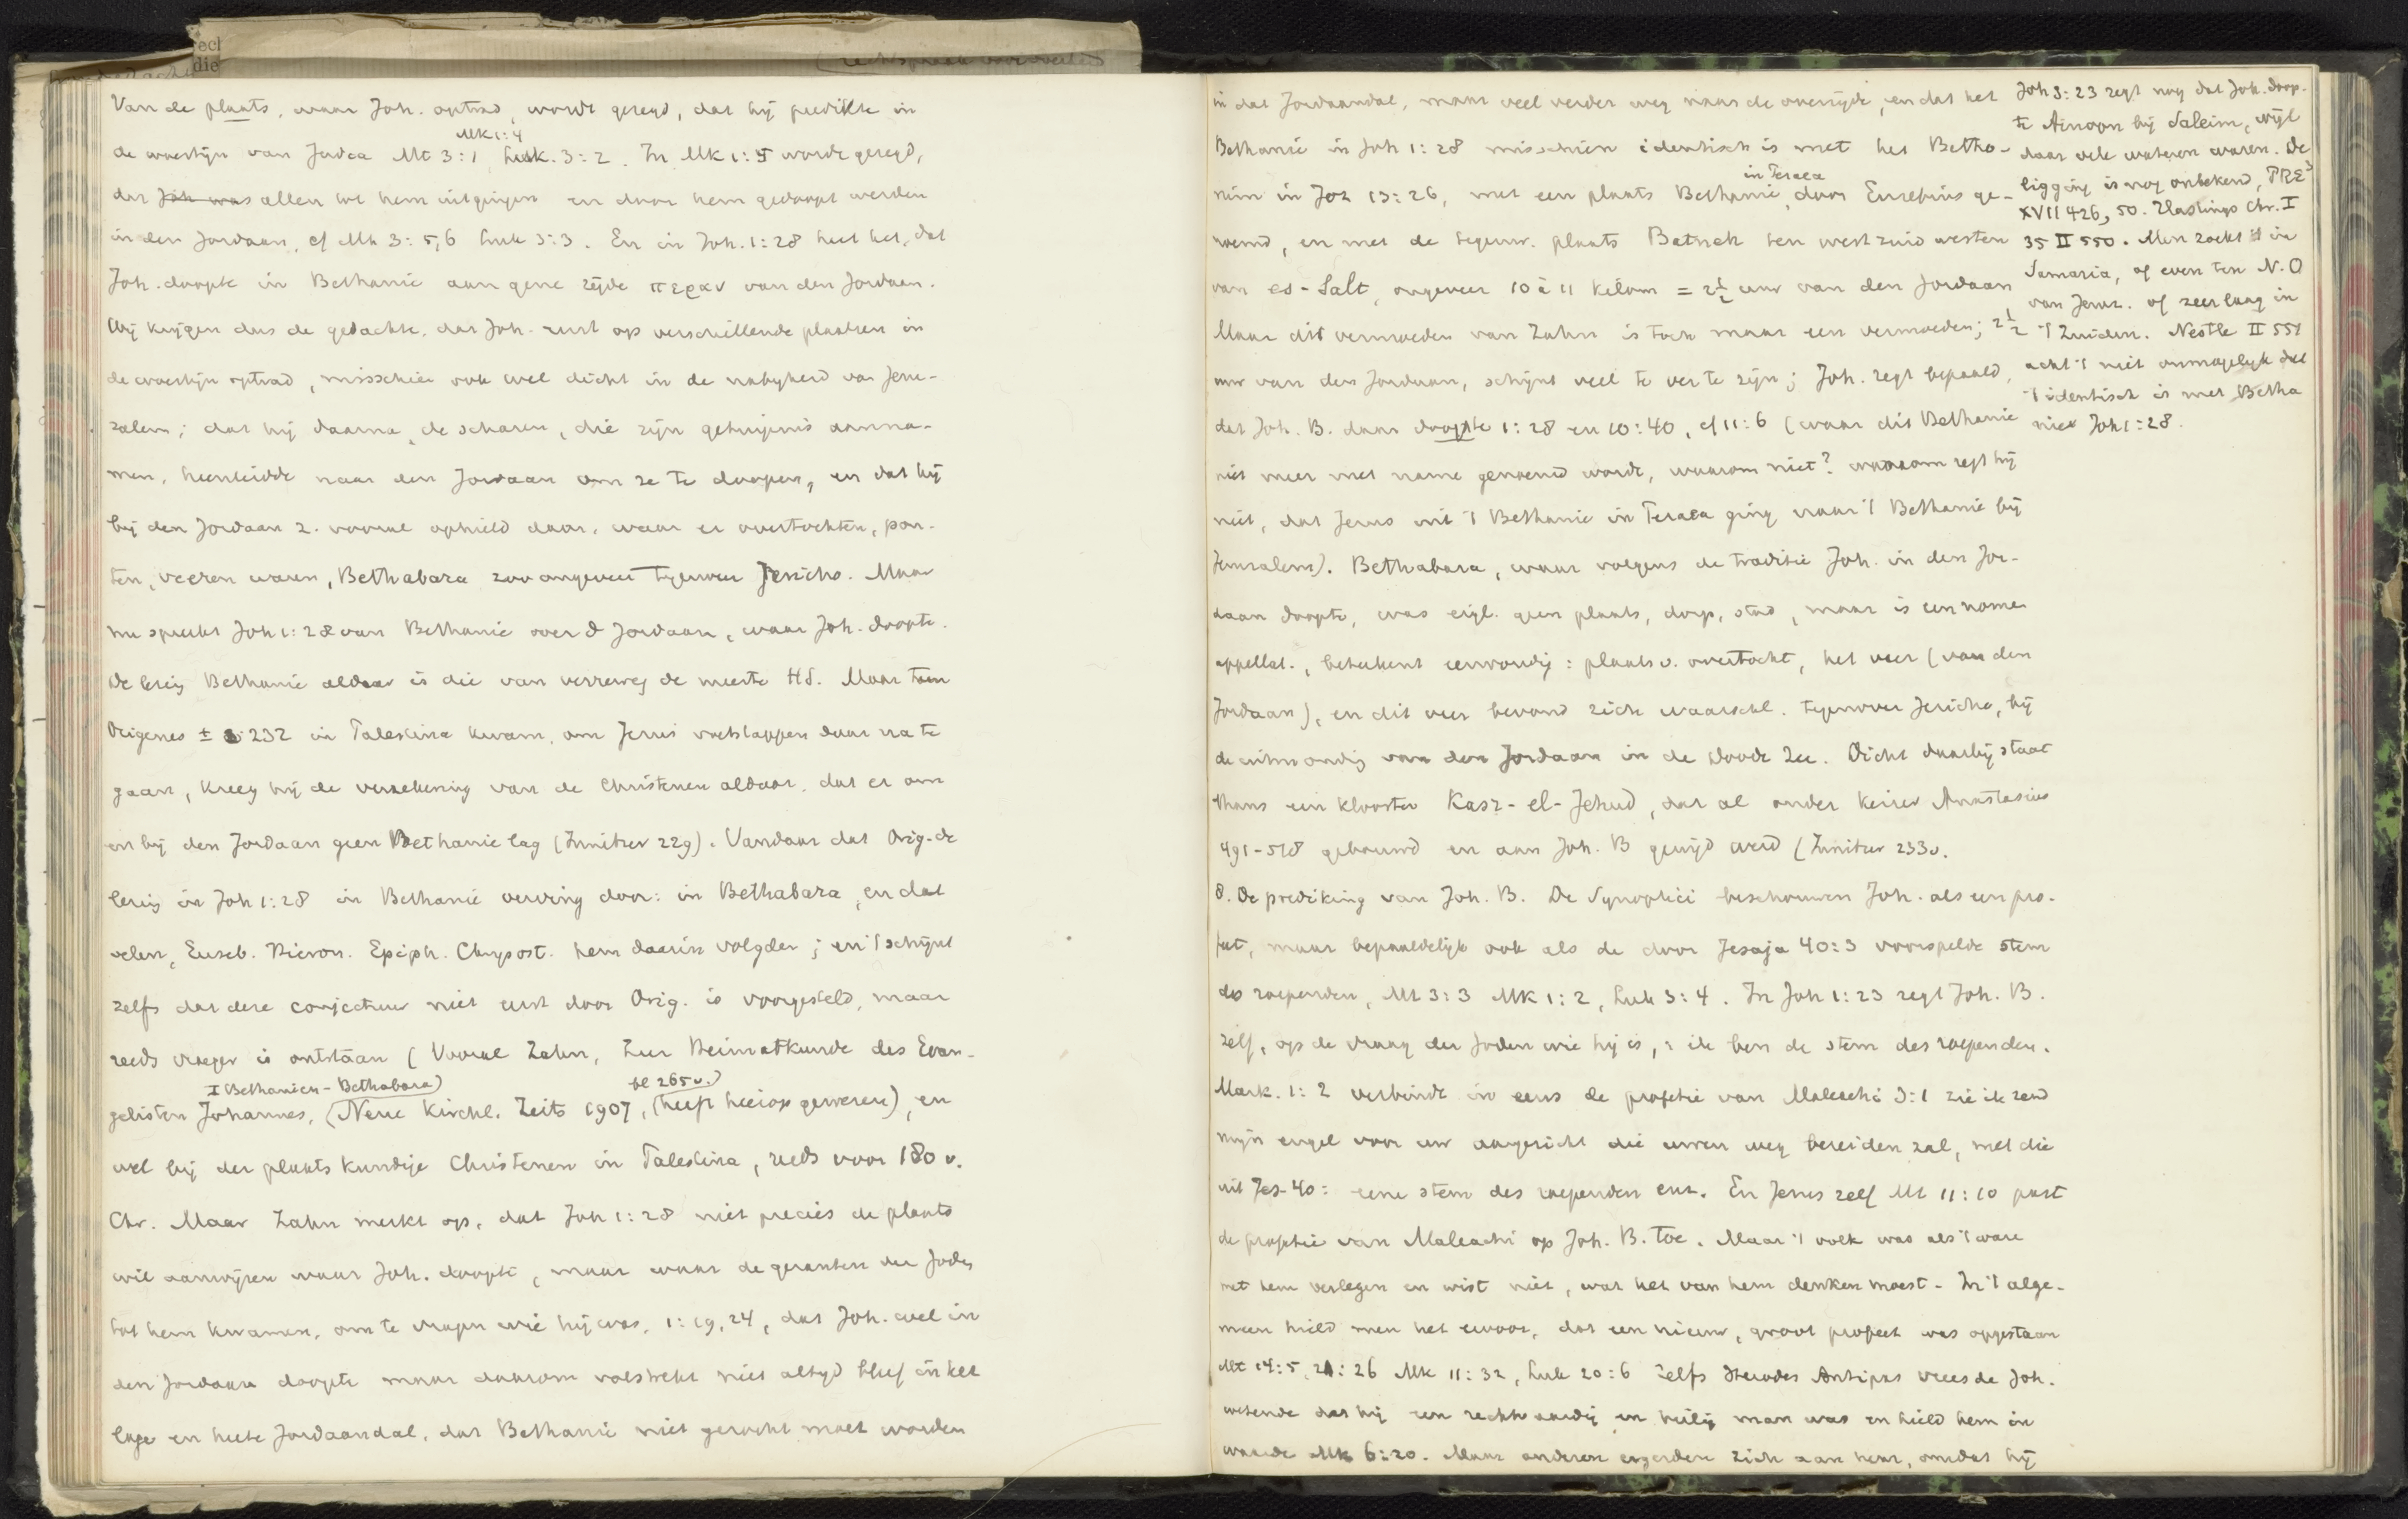 Van de plaats, waar Joh. optrad, wordt gezegd, dat hij predikte in
Mk 1:4
de woestijn van Judea Mt 3:1, Luk. 3:2. In Mk 1:5 wordt gezegd,
dat Joh was allen tot hem uitgingen en door hem gedoopt werden
in den Jordaan, cf Mt 3:5,6 Luk 3:3. En in Joh. 1:28 heet het, dat
Joh. doopte in Bethanië aan gene zijde περαν van den Jordaan.
Wij krijgen dus de gedachte, dat Joh. eerst op verschillende plaatsen in
de woestijn optrad, misschien ook wel dicht in de nabijheid van Jeru-
zalem; dat hij daarna, de scharen, die zijn getuigenis aanna-
men, heenleidde naar den Jordaan om ze te doopen, en dat hij
bij den Jordaan z. vooral ophield daar, waar er overtochten, pon-
ten, veeren waren, Bethabara zoo ongeveer tegenover Jericho. Maar
nu spreekt Joh 1:28 van Bethanië over d Jordaan, waar Joh. doopte.
De lezing Bethanië aldaar is die van verreweg de meeste HS. Maar toen
Origenes ± 232 in Palestina kwam, om Jezus voetstappen daar na te
gaan, kreeg hij de verzekering van de Christenen aldaar, dat er om
en bij den Jordaan geen Bethanie lag (Innitzer 229). Vandaar dat Orig. de
lezing in Joh 1:28 in Bethanië verving door: in Bethabara, en dat
velen, Euseb. Hieron. Epiph. Chrysost. hem daarin volgden; en 't schijnt
zelfs dat deze conjectuur niet eerst door Orig. is voorgesteld, maar
reeds vroeger is ontstaan (Vooral Zahn, Zur Heimatkunde des Evan-
I Bethanien - Bethabara) bl 265v.)
gelisten Johannes, (Neue Kirchl. Zeits 1907, (heeft hierop gewezen), en
wel bij der plaatskundige Christenen in Palestina, reeds voor 180 v.
Chr. Maar Zahn merkt op, dat Joh 1:28 niet precies de plaats
wil aanwijzen waar Joh. doopte, maar waar de gezanten der Joden
tot hem kwamen, om te vragen wie hij was, 1:19,24, dat Joh. wel in
den Jordaan doopte maar daarom volstrekt niet altijd bleef in het
lage en heete Jordaandal, dat Bethanië niet gezocht moet worden
in dat Jordaandal, maar veel verder weg naar de overzijde, en dat het
Bethanië in Joh 1:28 misschien identisch is met het Betho-
in Peraea
nim in Joz 13:26, met een plaats Bethanië, door Eusebius ge-
noemd, en met de tegenw. plaats Betneh ten westzuidwesten
van es-Salt, ongeveer 10 à 11 kilom = 2½ uur van den Jordaan
Maar dit vermoeden van Zahn is toch maar een vermoeden; 2½
uur van den Jordaan, schijnt veel te ver te zijn; Joh. zegt bepaald,
dat Joh. B. daar doopte 1:28 en 10:40, cf 11:6 (waar dit Bethanië
niet meer met name genoemd wordt, waarom niet? waarom zegt hij
niet, dat Jezus uit 't Bethanië in Peraea ging naar 't Bethanië bij
Jeruzalem). Bethabara, waar volgens de traditie Joh. in den Jor-
daan doopte, was eigl. geen plaats, dorp, stad, maar is een nomen
appellat., beteekent eenvoudig: plaats v. overtocht, het veer (van den
Jordaan), en dit veer bevond zich waarschl. tegenover Jericho, bij
de uitmonding van den Jordaan in de Doode Zee. Dicht daarbij staat
thans een klooster Kasr-el-Jehud, dat al onder keizer Anastasius
491-518 gebouwd en aan Joh. B gewijd werd (Innitzer 233v.
8. De prediking van Joh. B. De Synoptici beschouwen Joh. als een pro-
feet, maar bepaaldelijk ook als de door Jesaja 40:3 voorspelde stem
des roependen, Mt 3:3 Mk 1:2, Luk 3:4. In Joh 1:23 zegt Joh. B.
zelf, op de vraag der Joden wie hij is,: ik ben de stem des roependen.
Mark. 1:2 verbindt in eens de profetie van Maleachi 3:1 zie ik zend
mijn engel voor uw aangezicht die uwen weg bereiden zal, met die
uit Jes. 40: eene stem des roependen enz. En Jezus zelf Mt 11:10 past
de profetie van Maleachi op Joh. B. toe. Maar 't volk was als 't ware
met hem verlegen en wist niet, wat het van hem denken moest. In 't alge-
meen hield men het ervoor, dat een nieuw, groot profeet was opgestaan
Mt 14:5, 21:26 Mk 11:32, Luk 20:6 Zelfs Herodes Antipas vreesde Joh.
wetende dat hij een rechtvaardig en heilig man was en hield hem in
waarde Mk 6:20. Maar anderen ergerden zich aan hem, omdat hij
Joh 3:23 zegt nog dat Joh. doop-
te Ainoon bij Saleim, wijl
daar vele wateren waren. De
ligging is nog onbekend, PRE³
XVII 426,50. Hastings Chr. I
35 II 550. Men zoekt 't in
Samaria, of even ten N.O
van Jeruz. of zeer laag in
't Zuiden. Nestle II 551
acht 't niet onmogelijk dat
't identisch is met Betha
nië Joh 1:28.